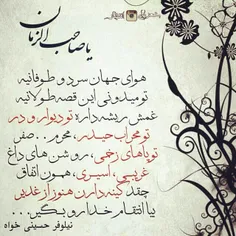 یا صاحب الزمان
هوای جهان سرد و طوفانیه
تو میدونی این قصه طولانیه
غمش ریشه داره تو دیوار و در
تو محراب حیدر، محرم.. صفر
تو پاهای زخمی، رو شن های داغ
غریبی، اسیری، همون اتفاق
چقد کینه دارن هنوز از غدیر
بیا انتقام خدا رو بگیر...
نیلوفر حسینی خواه